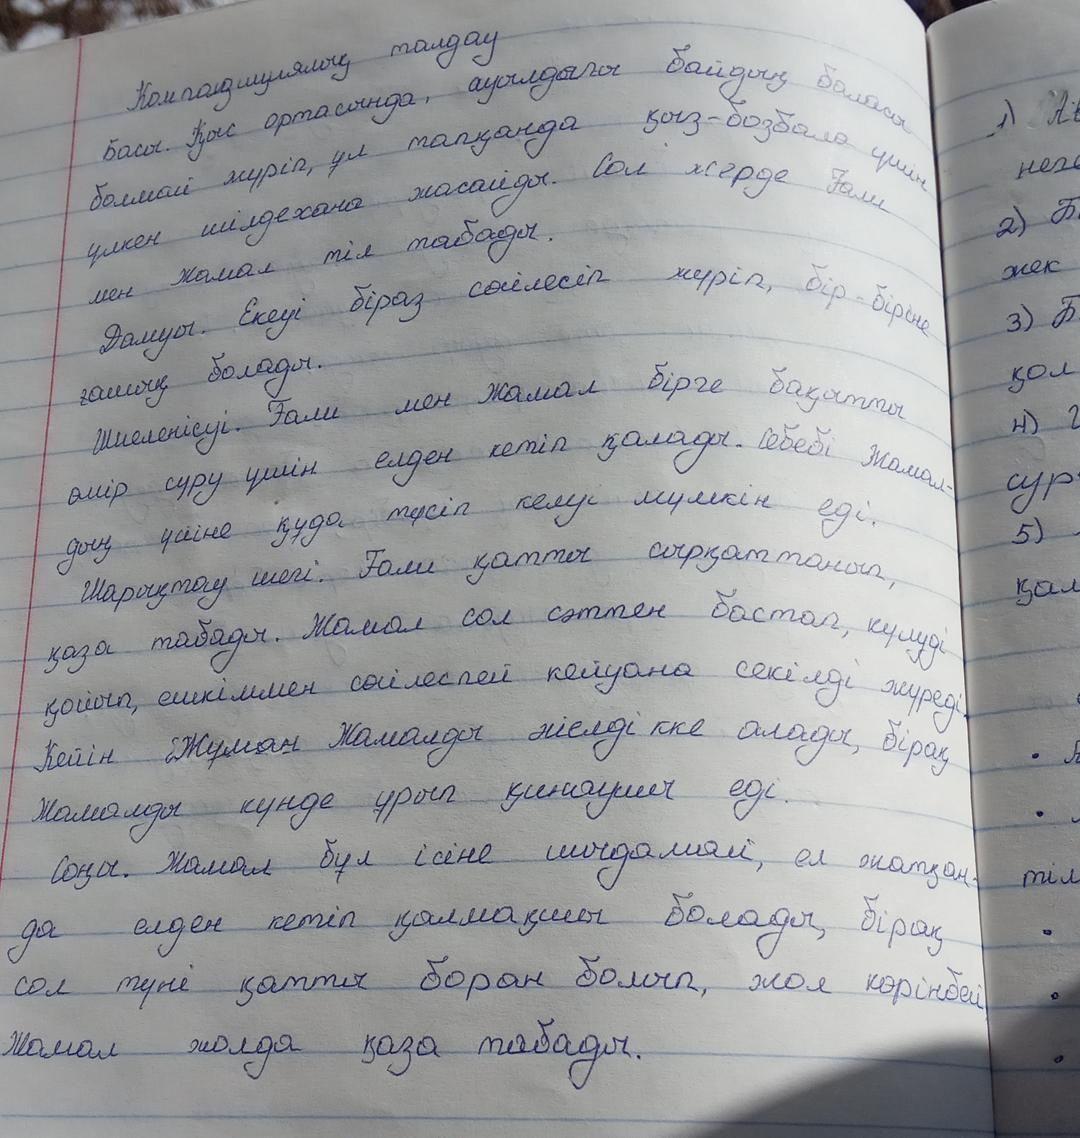 Композициялық талдау
Басы. Қыс ортасында, ауылдағы байдың баласы
болмай жүріп, ұл тапқанда қыз-бозбала үшін
үлкен шілдехана жасайды. Сол жерде Ғали
мен Жамал тіл табады.
Дамуы. Екеуі біраз сөйлесіп жүріп, бір-біріне
ғашық болады.
Шиеленісуі. Ғали мен Жамал бірге бақытты
өмір сүру үшін елден кетіп қалады. Себебі Жамал-
дың үйіне құда түсіп келуі мүмкін еді.
Шарықтау шегі. Ғали қатты сырқаттанып,
қаза табады. Жамал сол сәттен бастап, күлуді
қойып, ешкіммен сөйлеспей кейуана секілді жүреді.
Кейін Жұман Жамалды әйелдікке алады, бірақ
Жамалды күнде ұрып қинаушы еді.
Соңы. Жамал бұл ісіне шыдамай, ел жатқан-
да елден кетіп қалмақшы болады, бірақ
сол түні қатты боран болып, жол көрінбей
Жамал жолда қаза табады.
1)
2)
жек
3) Б
қол
4)
5)
тіл